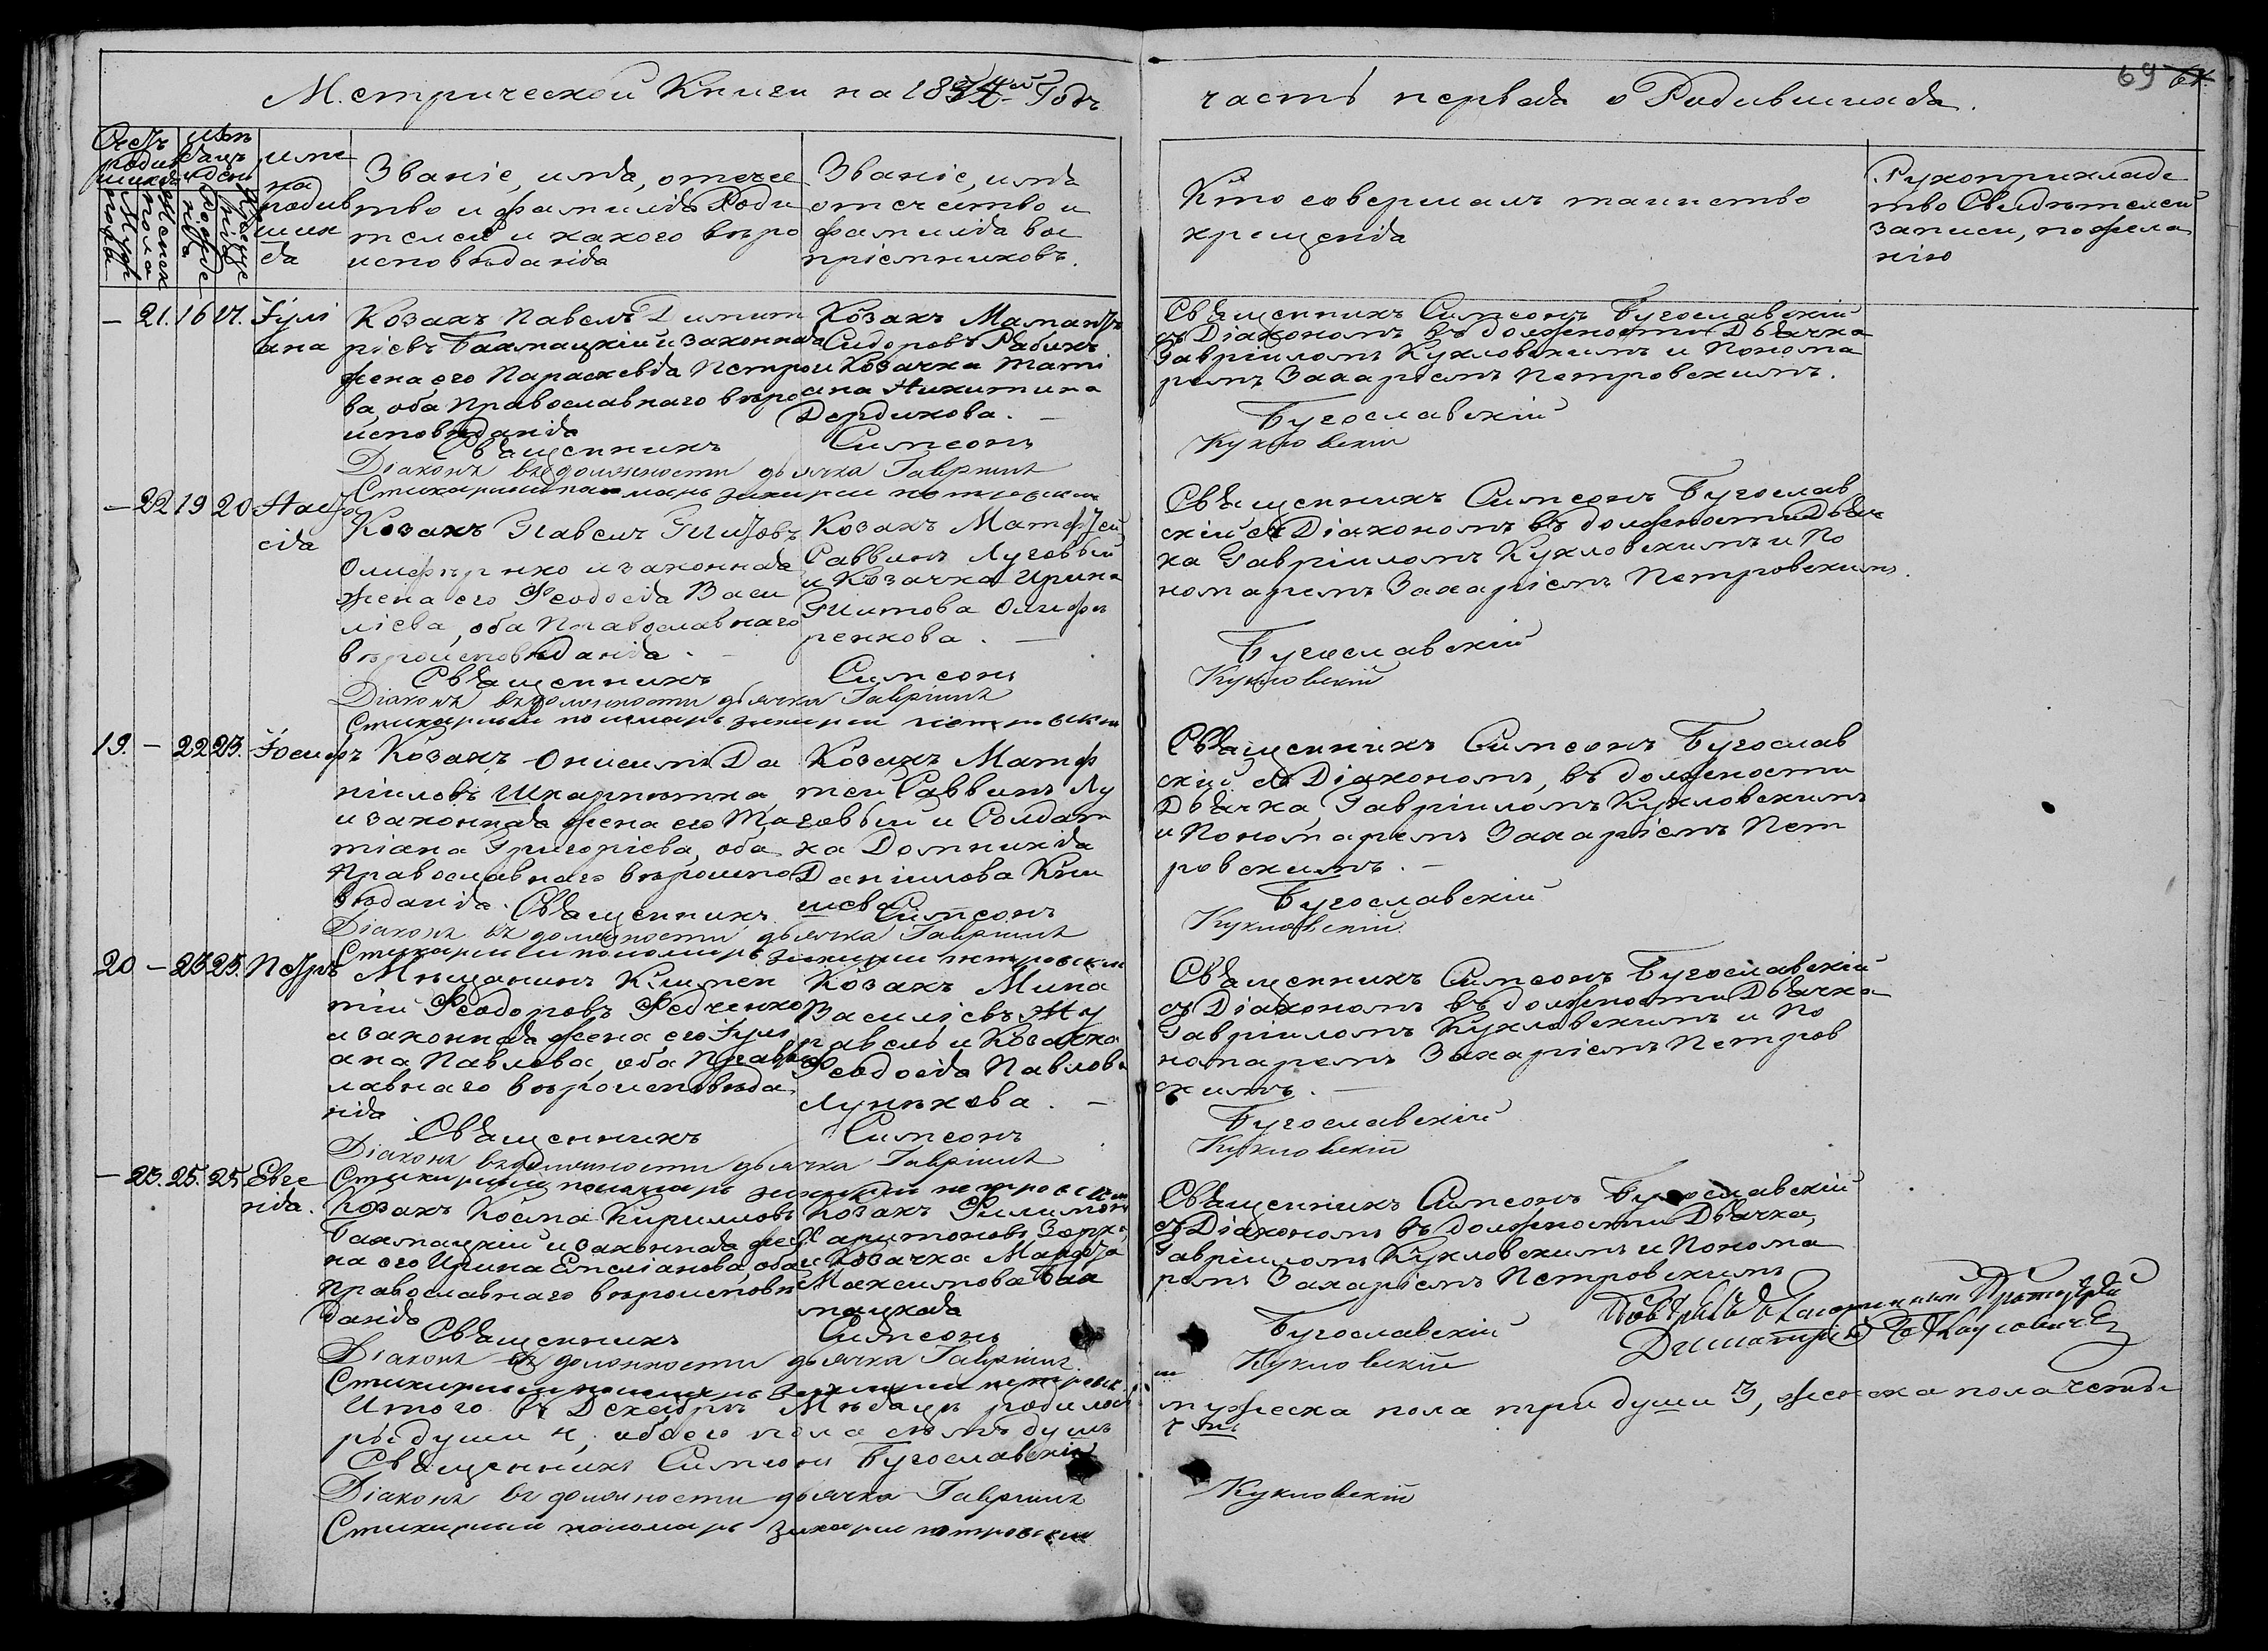 Метрической Книги на 1874й Годъ
часть первая о Родившихся.
69
Счетъ родившихся
Мѣсяцъ и день
Мужеска пола
Женска пола
Рожденія
Крещенія
имена родившихся
Званіе, имя, отчес
тво и фамилія Роди
телей и какого вѣро
исповѣданія
Званіе, имя
отчество и
фамилія вос
пріемниковъ.
Кто совершалъ таинство
крещенія
Рукоприкладс
тво Свидѣтелей
записи, пожела
нію
— 21. 16 17. Іулі
ана
Козакъ Павелъ Димит
ріевъ Бахмацкій и законная
жена его Параскевія Петро
ва, оба Православнаго вѣро
исповѣданія
Козакъ
Сидоровъ Рябихъ
и Козачка Тати
ана Никитина
Дердикова. —
Священникъ Симеонъ Бугославскій
съ Діакономъ въ должности Дьячка
Гавріиломъ Кукловскимъ и Понома
ремъ Захаріемъ Петровскимъ.
Священникъ Симеонъ Бугославскій
Діаконъ въ должности дьячка Гавріилъ Кукловскій
Стихарный пономарь Захарій Петровскій
— 22 19 20 Анас
сія
Козакъ Павелъ Титовъ
Олиференко и законная
жена его Феодосія Васи
ліева, оба Православнаго
вѣроисповѣданія. —
Козакъ Матфей
Саввинъ Луговый
и Козачка Ирина
Титова Олифе
ренкова. —
Священникъ Симеонъ Бугослав
скій съ Діакономъ въ должности Дьяч
ка Гавріиломъ Кукловскимъ и По
номаремъ Захаріемъ Петровскимъ.
Священникъ Симеонъ Бугославскій
Діаконъ въ должности дьячка Гавріилъ Кукловскій
Стихарный пономарь Захарій Петровскій
19. — 22 23. Іосифъ
Козакъ Онисимъ Да
ніиловъ Шкарпетка
и законная жена его Та
тіана Григоріева, оба
Православнаго вѣроиспо
вѣданія.
Козакъ Матф
тей Саввинъ Лу
говый и Солдат
ка Домникія
Даніилова Кни
шева
Священникъ Симеонъ Бугослав
скій съ Діакономъ, въ должности
Дьячка, Гавріиломъ Кукловскимъ
и Пономаремъ Захаріемъ Пет
ровскимъ. —
Священникъ Симеонъ Бугославскій
Діаконъ въ должности дьячка Гавріилъ Кукловскій
Стихарный пономарь Захарій Петровскій
20 — 23 25. Петръ
Мѣщанинъ Климен
тій Феодоровъ Федченко
и законная жена его Іулі
ана Павлова, оба Правос
лавнаго вѣроисповѣда
нія
Козакъ Мина
Василіевъ Жу
равель и Козачка
Феодосія Павлова
Лунькова. —
Священникъ Симеонъ Бугославскій
съ Діакономъ въ должности Дьячка
Гавріиломъ Кукловскимъ и По
номаремъ Захаріемъ Петров
скимъ. —
Священникъ Симеонъ Бугославскій
Діаконъ въ должности дьячка Гавріилъ Кукловскій
Стихарный пономарь Захарій Петровскій
— 23. 25. 25 Евге
нія.
Козакъ Косма Кирилловъ
Бахмацкій и законная же
на его Ирина Емеліанова, оба
Православнаго вѣроисповѣ
данія
Козакъ Филимонъ
Харитоновъ
и Козачка Марфа
Максимова Бах
мацкая
Священникъ Симеонъ Бугославскій
съ Діакономъ въ должности Дьячка,
Гавріиломъ Кукловскимъ и Понома
ремъ Захаріемъ Петровскимъ
Священникъ Симеонъ Бугославскій
Діаконъ въ должности дьячка Гавріилъ Кукловскій
Стихарный пономарь Захарій Петровск
Протоіерей
Димитрій
Итого въ Декабрѣ Мѣсяцѣ родилось мужеска пола три души 3, женска пола четы
ре души 4, обоего пола семь душъ 7
Священникъ Симеонъ Бугославскій
Діаконъ въ должности дьячка Гавріилъ Кукловскій
Стихарный пономарь Захарій Петровскій